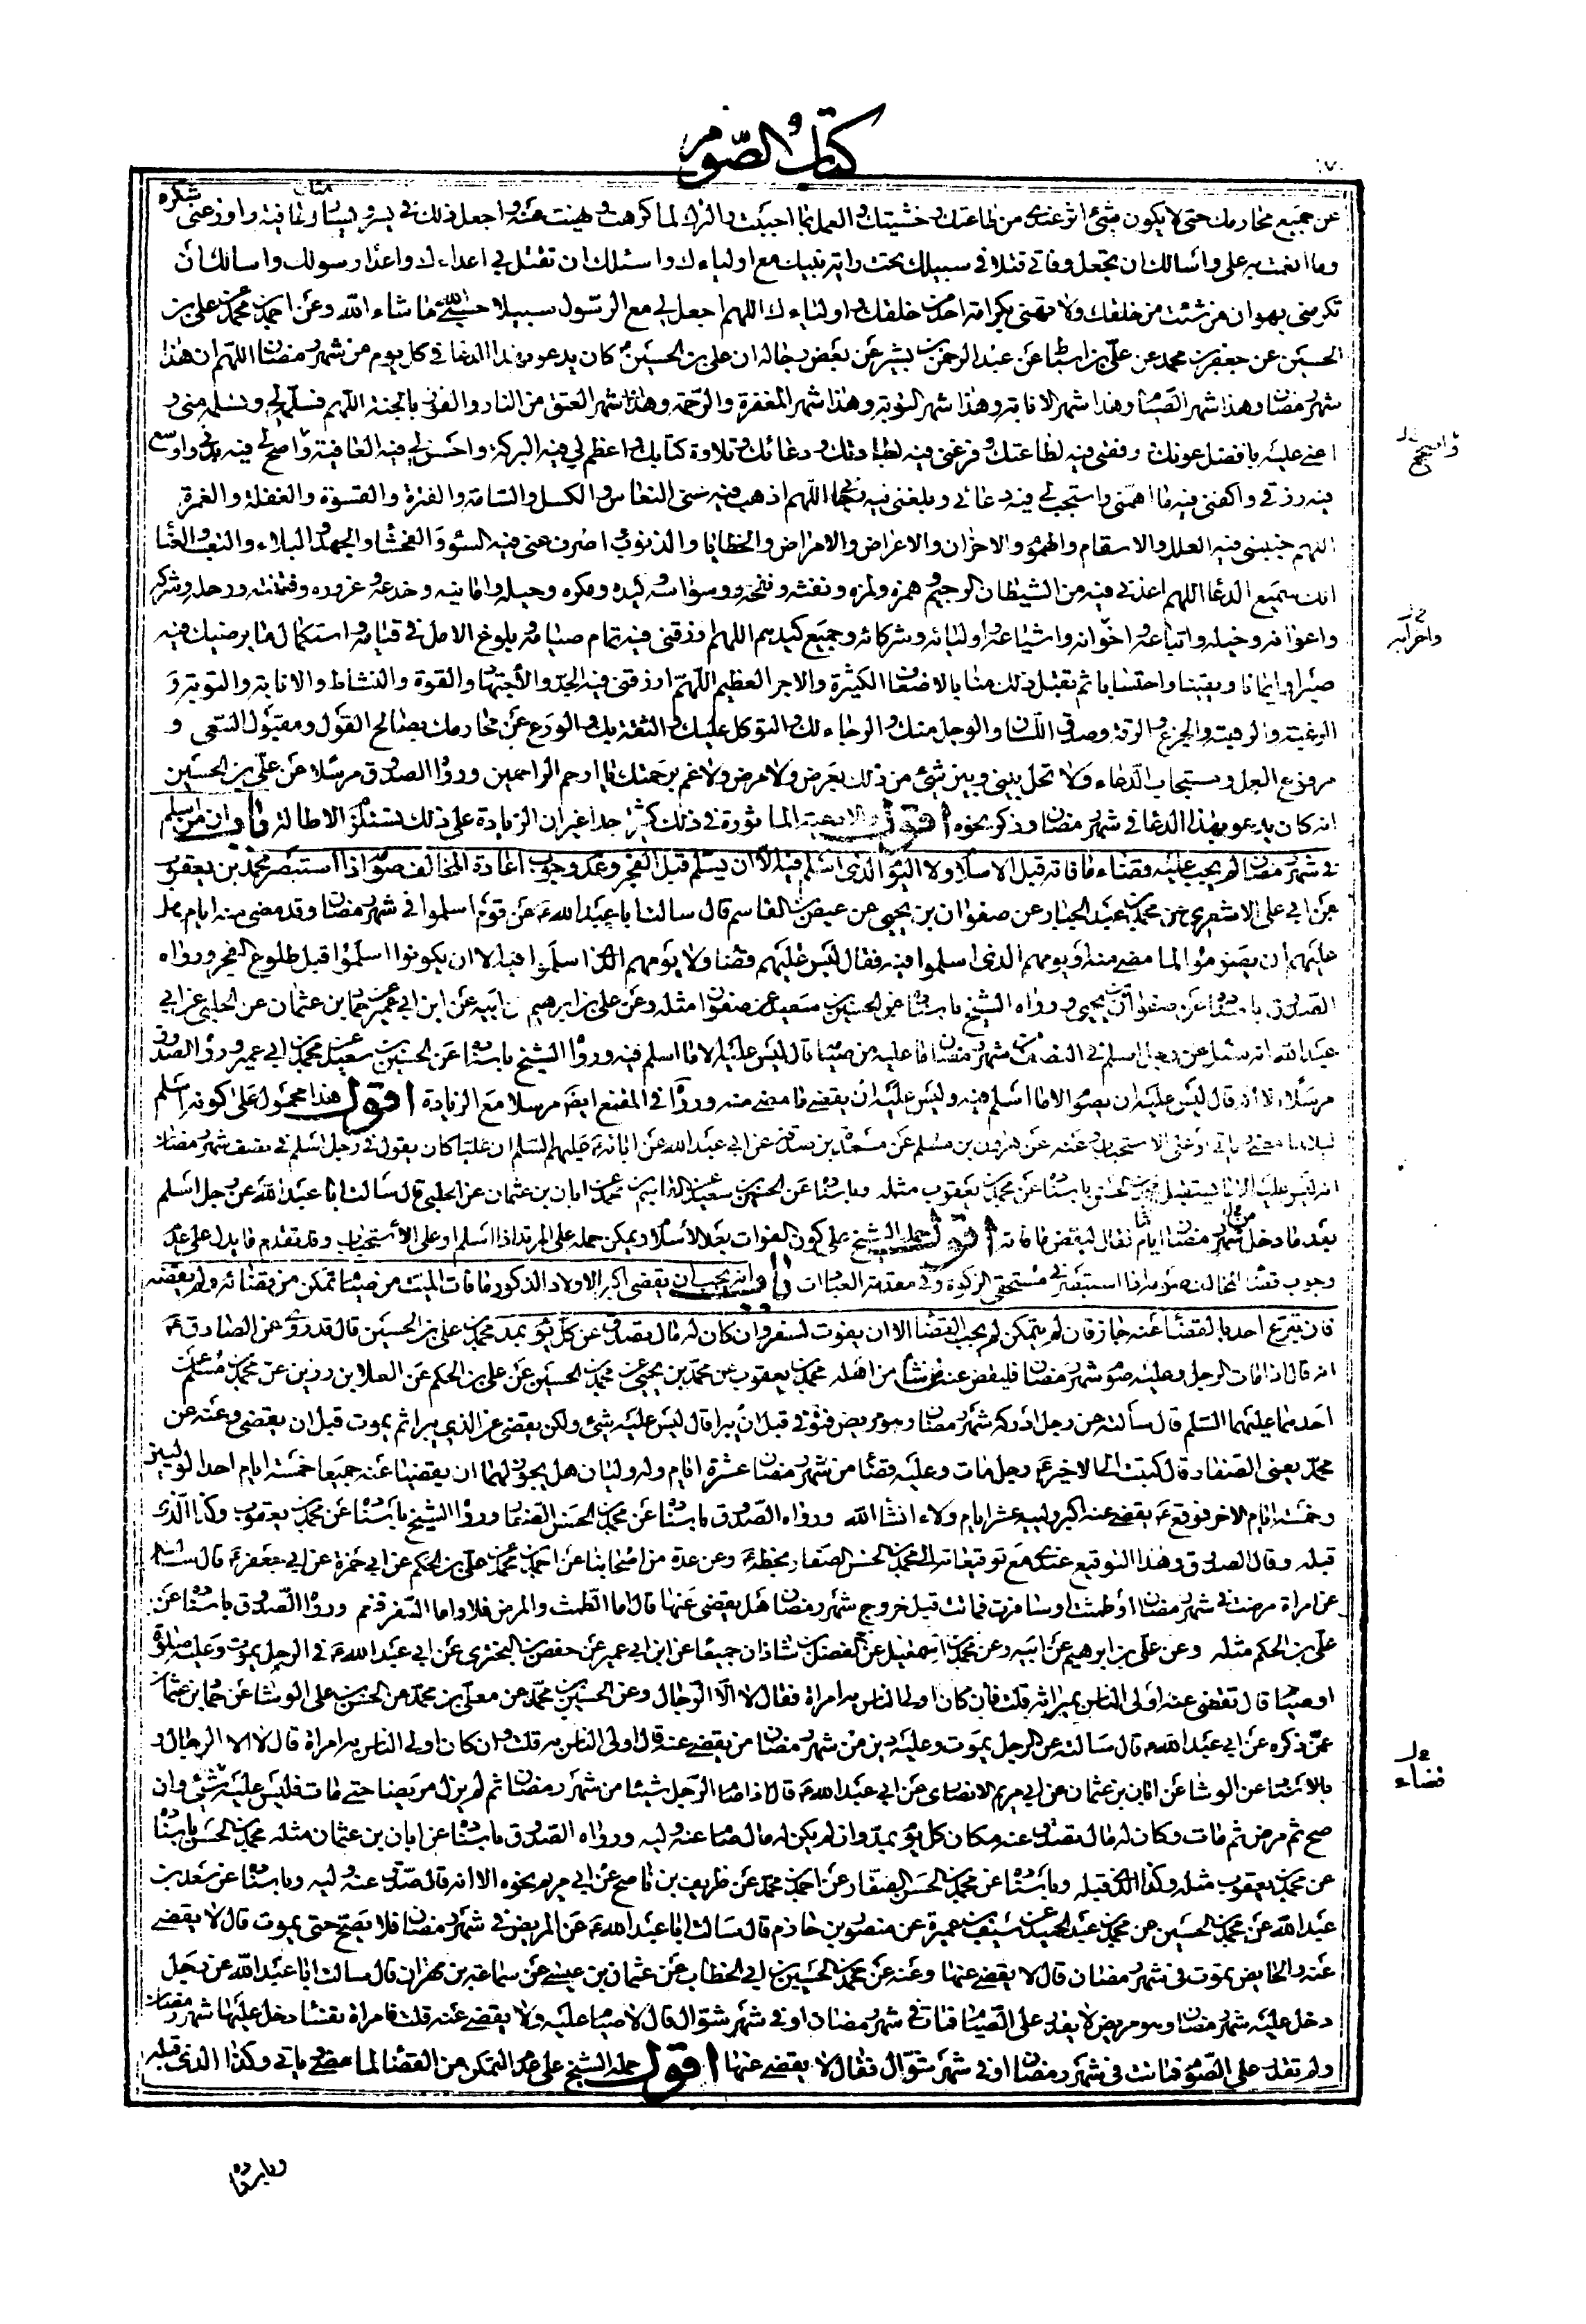 كتاب الصوم
عن جميع محارمك حتى لا يكون شئ اثر عندى من طاعتك وخشيتك والعمل بما احببت والترك لما كرهت ونهيت عنه واجعل ذلك فى يسر ويسار وعافية واوزعنى شكرك
وما انعمت به على واسالك ان تجعل وفاتى قتلا فى سبيلك تحت راية نبيك مع اولياءك واسئلك ان تقتل بى اعداءك واعداء رسولك واسالك ان
تكرمنى بهوان من شئت من خلقك ولا تهنى بكرامة احد من خلقك واولياءك اللهم اجعل لى مع الرسول سبيلا حسبى الله ما شاء الله وعن احمد بن محمد عن على بن
الحسين عن جعفر بن محمد عن على بن اسباط عن عبد الرحمن بن بشير عن بعض رجاله ان على بن الحسين كان يدعو بهذا الدعا فى كل يوم من شهر رمضان اللهم ان هذا
شهر رمضان وهذا شهر الصيام وهذا شهر الانابة وهذا شهر التوبة وهذا شهر المغفرة والرحمة وهذا شهر العتق من النار والفوز بالجنة اللهم فسلمه لى وتسلمه منى و
اعنى عليه بافضل عونك ووفقنى فيه لطاعتك وفرغنى فيه لعبادتك ودعائك وتلاوة كتابك واعظم لى فيه البركة واحسن لى فيه العافية واصح لى فيه بدنى واوسع
فيه رزقى واكفنى فيه ما اهمنى واستجب لى فيه دعائى وبلغنى فيه رجائى اللهم اذهب فيه عنى النعاس والكسل والسامة والفترة والقسوة والغفلة والغرة
اللهم جنبنى فيه العلل والاسقام والهموم والاحزان والاعراض والامراض والخطايا والذنوب اصرف عنى فيه السوء والفحشاء والجهد والبلاء والتعب والعناء
انك سميع الدعا اللهم اعذنى فيه من الشيطان الرجيم وهمزه ولمزه ونفثه ونفخه ووسواسه وكيده ومكره وحيله وامانيه وخدعه وغروره وفتنته ورجله وشركه
واعوانه وخيله واتباعه واخوانه واشياعه واوليائه وشركائه وجميع كيدهم اللهم ارزقنى فيه تمام صيامه وبلوغ الامل فى قيامه واستكمال ما يرضيك فيه
صبرا وايمانا ويقينا واحتسابا ثم تقبل ذلك منا بالاضعاف الكثيرة والاجر العظيم اللهم ارزقنى فيه الجد والاجتهاد والقوة والنشاط والانابة والتوبة و
الرغبة والرهبة والجزع والرقة وصدق اللسان والوجل منك والرجاء لك والتوكل عليك والثقة بك والورع عن محارمك بصالح القول ومقبول السعى و
مرفوع العمل ومستجاب الدعاء ولا تحل بينى وبين شئ من ذلك بعرض ولا مرض ولا غم برحمتك يا ارحم الراحمين وروا الصدوق مرسلا عن على بن الحسين
انه كان يدعو بهذا الدعا فى شهر رمضان وذكر نحوه اقول والادعية الماثورة فى ذلك كثيرة جدا غير ان الزيادة على ذلك تستلزم الاطالة باب ان من اسلم
فى شهر رمضان لم يجب عليه قضاء ما فاته قبل الاسلام ولا اليوم الذى اسلم فيه الا ان يسلم قبل الفجر وعدم وجوب اعادة المخالف صومه اذا استبصر محمد بن يعقوب
عن ابى على الاشعرى عن محمد بن عبد الجبار عن صفوان بن يحيى عن عيص بن القاسم قال سالت ابا عبد الله ع عن قوم اسلموا فى شهر رمضان وقد مضى منه ايام هل
عليهم ان يصوموا ما مضى منه او يومهم الذى اسلموا فيه فقال ليس عليهم قضاء ولا يومهم الذى اسلموا فيه الا ان يكونوا اسلموا قبل طلوع الفجر ورواه
الصدوق باسناده عن صفوان بن يحيى ورواه الشيخ باسناده عن الحسين بن سعيد عن صفوان مثله وعن على بن ابراهيم عن ابيه عن ابن ابى عمير عن حماد بن عثمان عن الحلبى عن ابى
عبد الله انه سئل عن رجل اسلم فى النصف من شهر رمضان ما عليه من صيامه قال ليس عليه الا ما اسلم فيه وروا الشيخ باسناده عن الحسين بن سعيد عن محمد بن ابى عمير وروا الصدوق
مرسلا الا انه قال ليس عليه ان يصوم الا ما اسلم فيه وليس عليه ان يقضى ما مضى منه ورواه فى المقنع ايضا مرسلا مع الزيادة اقول هذا محمول على كونه اسلم
ليلا لما مضى وياتى او على الاستحباب وعنه عن هرون بن مسلم عن مسعدة بن صدقة عن ابى عبد الله عن ابائه عليهم السلم ان عليا كان يقول فى رجل اسلم فى نصف شهر رمضان
انه ليس عليه الا ما يستقبل محمد بن الحسن باسناده عن محمد بن يعقوب مثله وباسناده عن الحسين بن سعيد عن القاسم بن محمد عن ابان بن عثمان عن الحلبى قال سالت ابا عبد الله عن رجل اسلم
بعد ما دخل من شهر رمضان ايام فقال ليقض ما فاته اقول حمله الشيخ على كون الفوات بعد الاسلام ويمكن حمله على المرتد اذا اسلم او على الاستحباب وقد تقدم ما يدل على عدم
وجوب قضاء المخالف صومه اذا استبصر فى مستحق الزكوة وفى مقدمة العبادات باب انه يجب ان يقضى اكبر الاولاد الذكور ما فات الميت من صيام تمكن من قضائه ولم يقضه
فان تبرع احد بالقضاء عنه جاز فان لم يتمكن لم يجب القضاء الا ان يفوت لسفر وان كان له مال تصدق عن كل يوم بمد محمد بن على بن الحسين قال قد روى عن الصادق ع
انه قال اذا مات الرجل وعليه صوم شهر رمضان فليقض عنه من شاء من اهله محمد بن يعقوب عن محمد بن يحيى عن محمد بن الحسين عن على بن الحكم عن العلا بن رزين عن محمد بن مسلم عن
احدهما عليهما السلم قال سالته عن رجل ادركه شهر رمضان وهو مريض فتوفى قبل ان يبرا قال ليس عليه شئ ولكن يقضى عن الذى يبرا ثم يموت قبل ان يقضى وعنه عن
محمد يعنى الصفار قال كتبت الى الاخير ع رجل مات وعليه قضاء من شهر رمضان عشرة ايام وله وليان هل يجوز لهما ان يقضيا عنه جميعا خمسة ايام احد الوليين
وخمسة ايام الاخر فوقع ع يقضى عنه اكبر وليه عشر ايام ولاء انشا الله ورواه الصدوق باسناده عن محمد بن الحسن الصفار وروا الشيخ باسناده عن محمد بن يعقوب وكذا الذى
قبله وقال الصدوق وهذا التوقيع عندى مع توقيعاته الى محمد بن الحسن الصفار بخطه ع وعن عدة من اصحابنا عن احمد بن محمد عن على بن الحكم عن ابى حمزة عن ابى جعفر ع قال سالته
عن امراة مرضت فى شهر رمضان او طمثت او سافرت فماتت قبل خروج شهر رمضان هل يقضى عنها قال اما الطمث والمرض فلا واما السفر فنعم وروا الصدوق باسناده عن
على بن الحكم مثله وعن على بن ابرهيم عن ابيه وعن محمد بن اسمعيل عن الفضل بن شاذان جميعا عن ابن ابى عمير عن حفص بن البخترى عن ابى عبد الله ع فى الرجل يموت وعليه صلوة
او صيام قال يقضى عنه اولى الناس بميراثه قلت فان كان اولى الناس به امراة فقال لا الا الرجال وعن الحسين بن محمد عن معلى بن محمد عن الحسن بن على الوشا عن حماد بن عثمان
عمن ذكره عن ابى عبد الله ع قال سالته عن الرجل يموت وعليه دين من شهر رمضان من يقضى عنه قال اولى الناس به قلت وان كان اولى الناس به امراة قال لا الا الرجال و
بالاسناد عن الوشا عن ابان بن عثمان عن ابى مريم الانصارى عن ابى عبد الله ع قال اذا صام الرجل شيئا من شهر رمضان ثم لم يزل مريضا حتى مات فليس عليه شئ وان
صح ثم مرض ثم مات وكان له مال تصدق عنه مكان كل يوم بمد وان لم يكن له مال صام عنه وليه ورواه الصدوق باسناده عن ابان بن عثمان مثله محمد بن الحسن باسناده
عن محمد بن يعقوب مثله وكذا الذى قبله وباسناده عن محمد بن الحسن الصفار عن احمد بن محمد عن ظريف بن ناصح عن ابى مريم نحوه الا انه قال صدق عنه وليه وباسناده عن سعد بن
عبد الله عن محمد بن الحسين عن محمد بن عبد الحميد عن سيف بن عميرة عن منصور بن حازم قال سالت ابا عبد الله ع عن المريض فى شهر رمضان فلا يصح حتى يموت قال لا يقضى
عنه والحايض تموت فى شهر رمضان قال لا يقضى عنها وعنه عن محمد بن الحسين بن ابى الخطاب عن عثمان بن عيسى عن سماعة بن مهران قال سالت ابا عبد الله عن رجل
دخل عليه شهر رمضان وهو مريض لا يقدر على الصيام فمات فى شهر رمضان او فى شهر شوال قال لا صيام عليه ولا يقضى عنه قلت فامراة نفساء دخل عليها شهر رمضان
ولم تقدر على الصوم فماتت فى شهر رمضان او فى شهر شوال فقال لا يقضى عنها اقول حمله الشيخ على عدم التمكن من القضاء لما مضى وياتى وكذا الذى قبله
واصح
واحزابه
قضاء
وباسناده